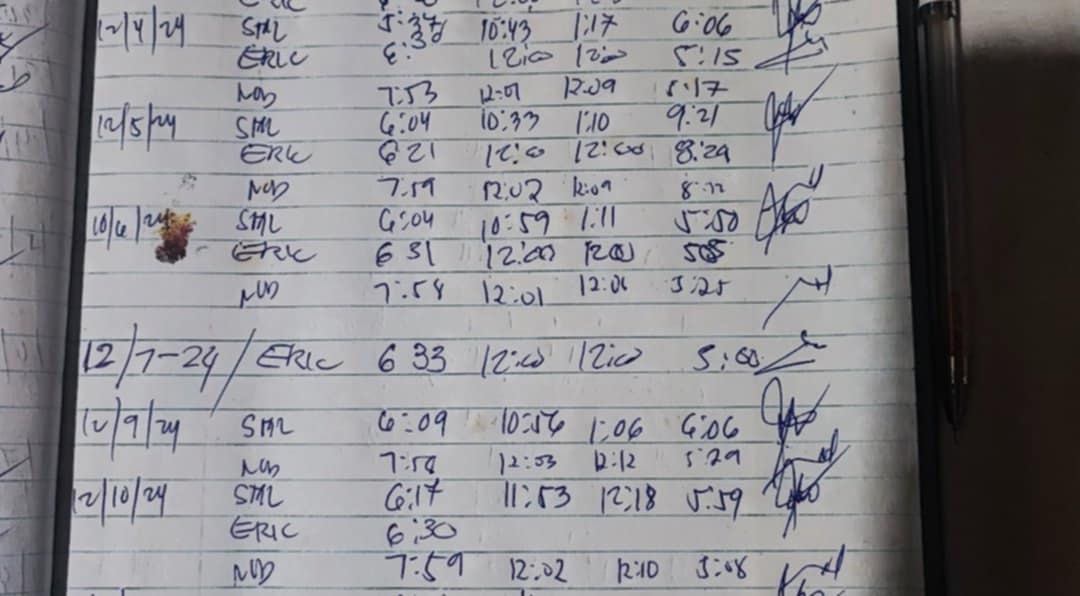 ERIC
12/4/24 STAL 5:37 10:43 1:17 6:06
ERIC 12:00 12:00 5:15
NUD 7:53 12:09 5:17
12/5/24 STAL 6:04 10:33 1:10 9:21
ERIC 6 21 12:00 12:00 8:29
NUD 7:59 12:02 12:09
10/6/24 STAL 6:04 10:59 1:11 5:50
ERIC 6 31 12:00
NUD 12:01 5:25
12/7-24/ ERIC 6 33 12:00 12:00 5:00
12/9/24 STAL 6:09 10:56 1:06 6:06
NUD 12:03 12:12 5:29
12/10/24 STAL 6:17 11:53 12:18 5:59
ERIC 6:30
NUD 7:59 12:02 12:10 5:08